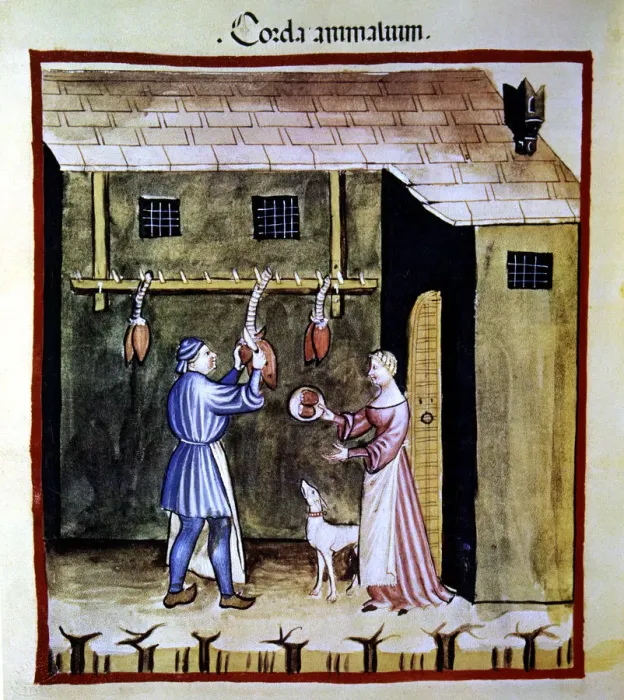 . Corda animalium.